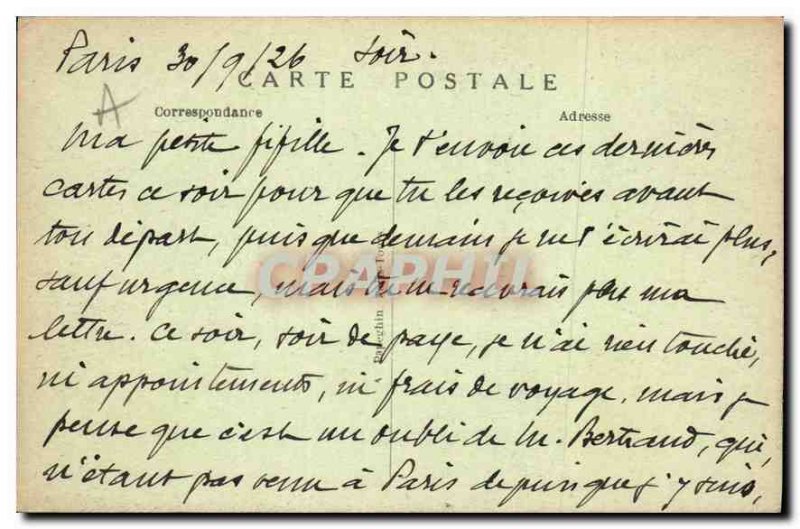 Paris 30/9/26 soir.
CARTE POSTALE
A
Correspondance
Adresse
Ma petite fifille. Je t'envoie ces dernières
cartes ce soir pour que tu les reçoives avant
ton départ, puisque demain je ne t'écrirai plus,
sauf urgence, mais tu ne recevrais plus ma
lettre. Ce soir, soir de paye, je n'ai rien touché,
ni appointements, ni frais de voyage, mais je
pense que c'est un oubli de M. Bertrand, qui,
n'étant pas venu à Paris depuis que j'y suis,
CRAPHII